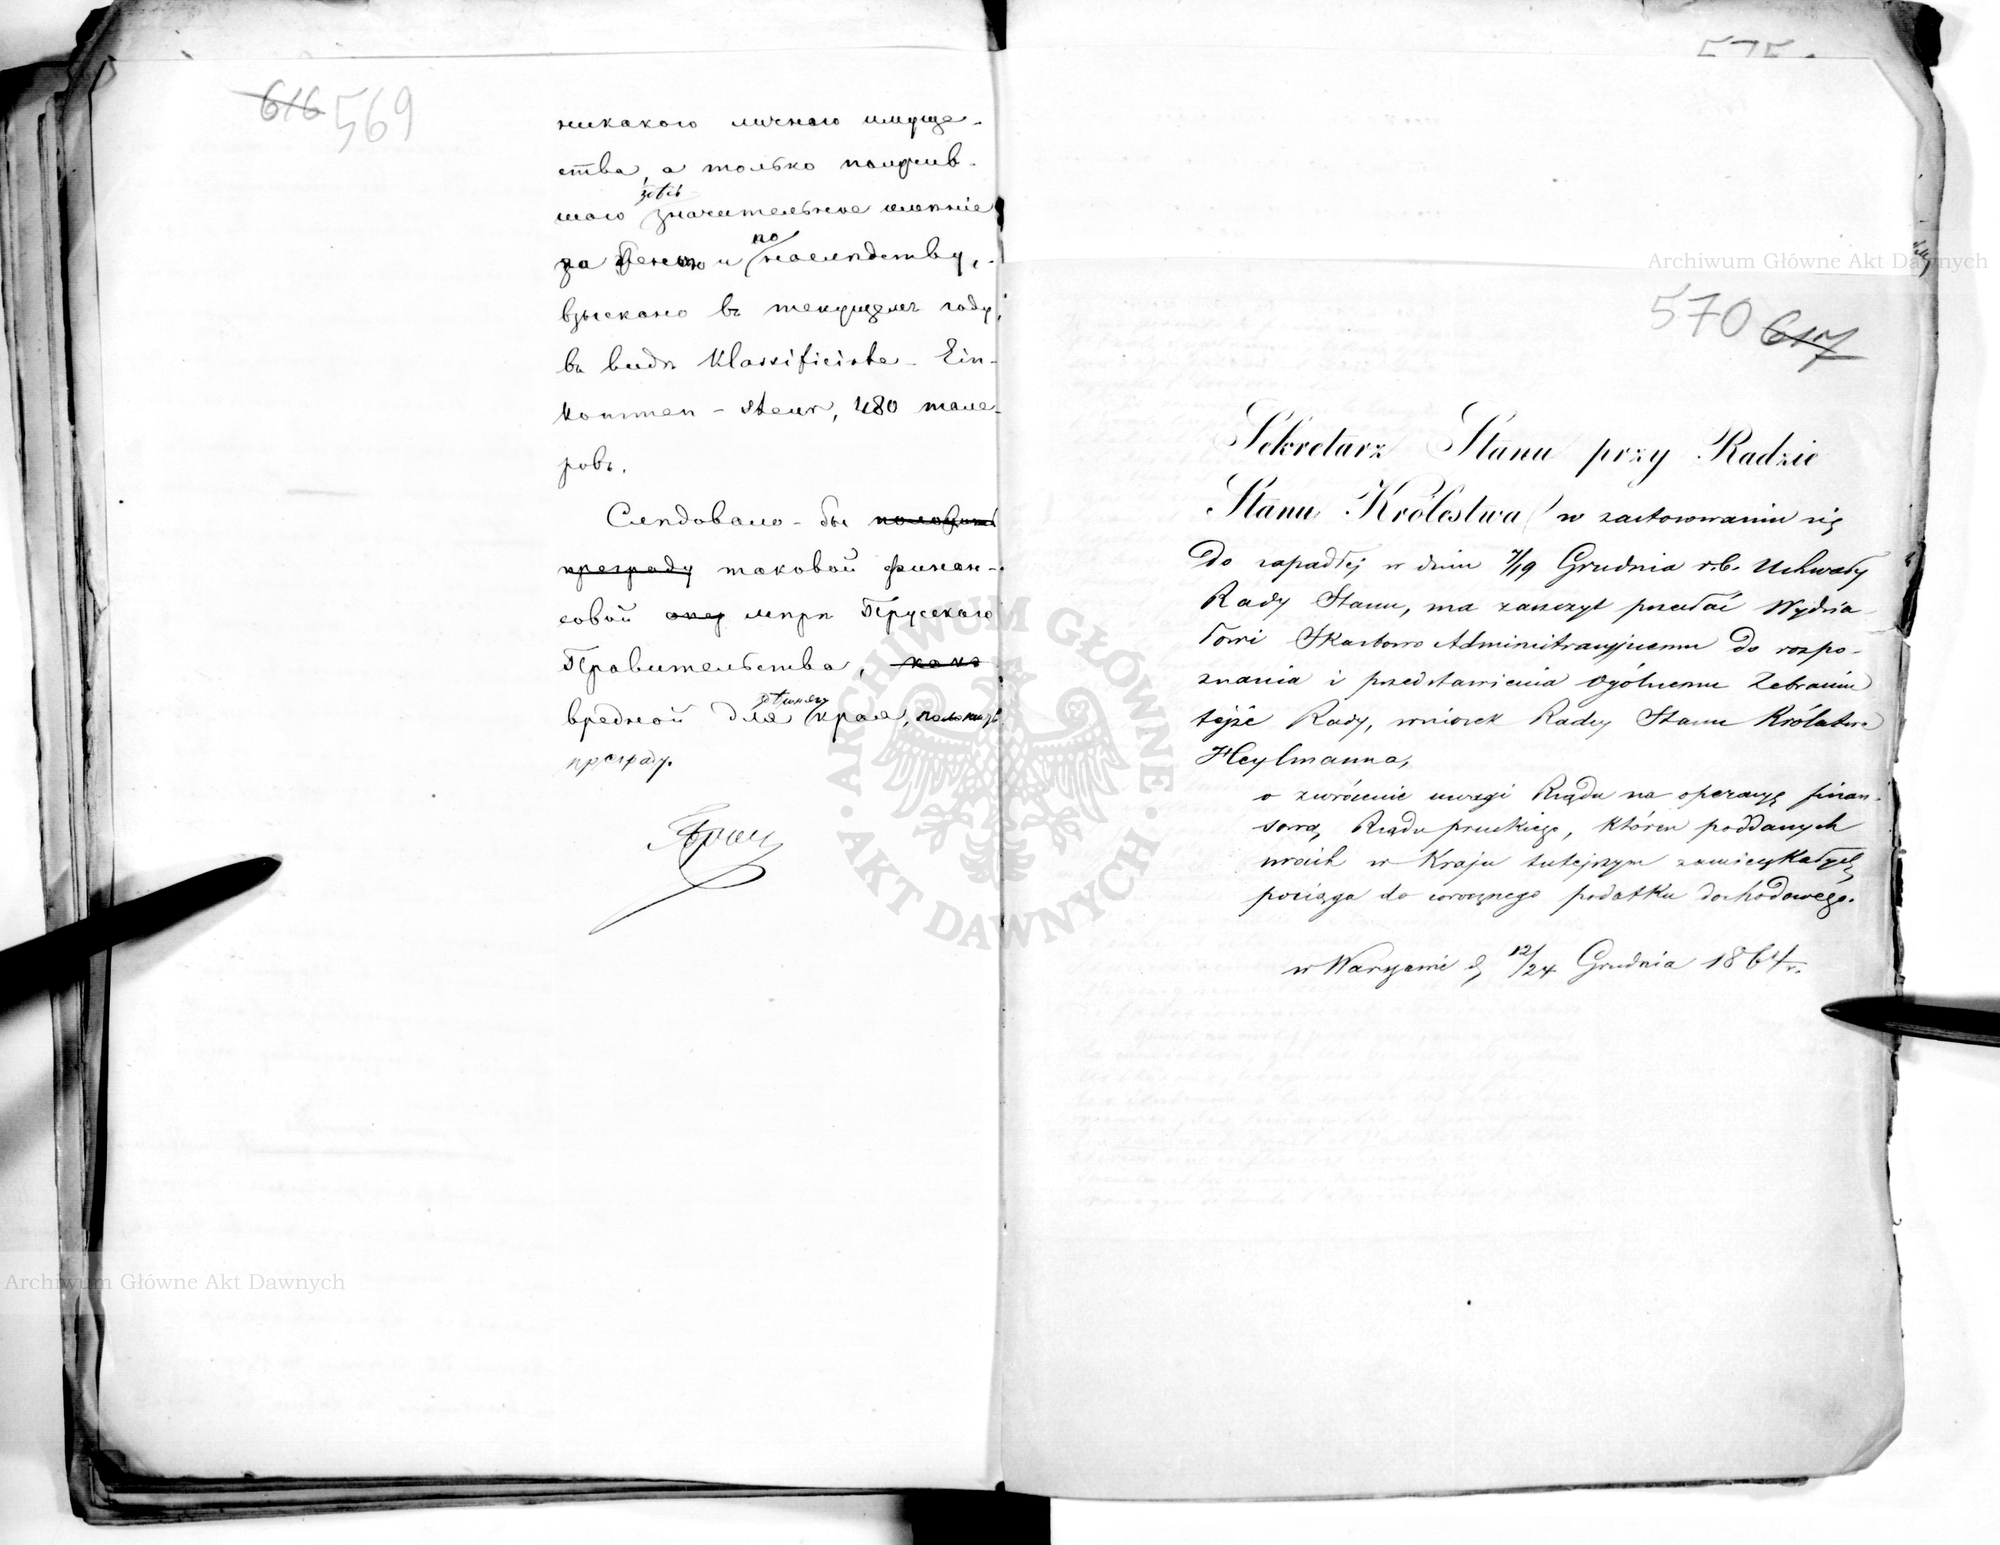 616 569
никакого личнаго имуще-
ства, а только получив-
шаго здѣсь значительное имѣніе
за женою и по наслѣдству,
взыскано въ текущемъ году,
въ видѣ Klassificirte - Ein-
kommen - steur, 480 тале-
ровъ.
Слѣдовало-бы положить
преграду таковой финан-
совой опер мѣрѣ Прусскаго
Правительства, какъ
вредной для здѣшняго края, положить
преграду.
575
Archiwum Główne Akt Dawnych
570 617
Sekretarz Stanu przy Radzie
Stanu Królestwa w zastosowaniu się
do zapadłej w dniu 7/19 Grudnia r.b. Uchwały
Rady Stanu, ma zaszczyt przesłać Wydzia-
łowi Skarbowo Administracyjnemu do rozpo-
znania i przedstawienia Ogólnemu Zebraniu
tejże Rady, wniosek Radcy Stanu Królestwa
Heylmanna,
o zwrócenie uwagi Rządu na operacyę finan-
sową, Rządu pruskiego, któren poddanych
swoich w Kraju tutejszym zamieszkałych
pociąga do corocznego podatku dochodowego.
w Warszawie d. 12/24 Grudnia 1864 r.
ARCHIWUM GŁÓWNE AKT DAWNYCH
Archiwum Główne Akt Dawnych